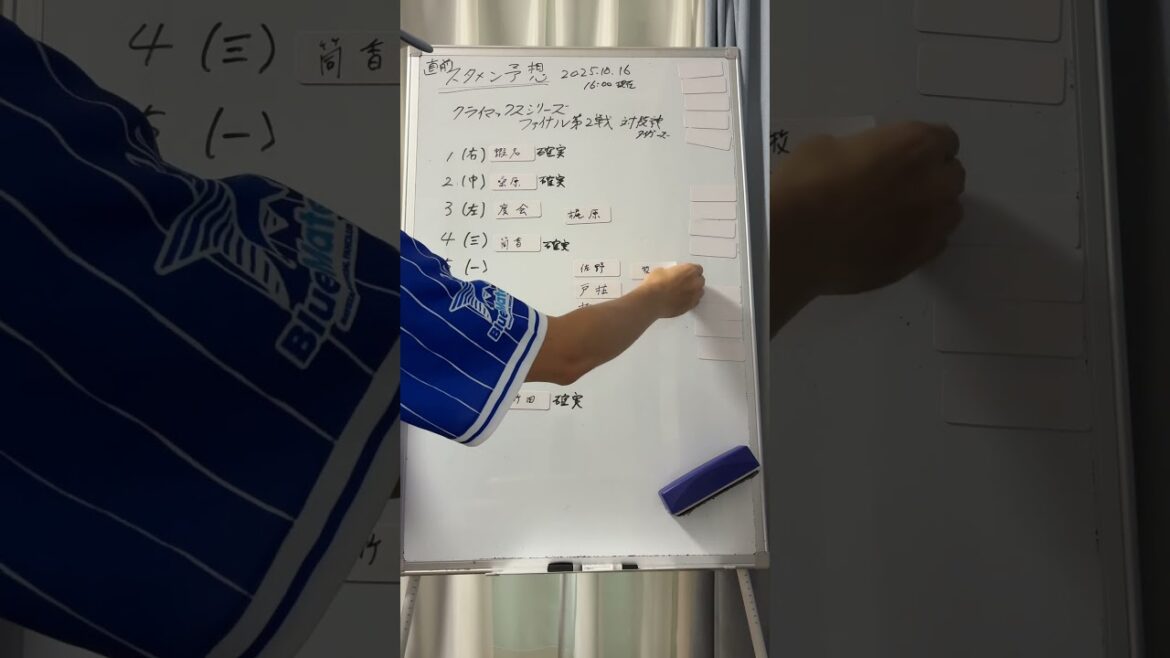 直前 スタメン予想 2025.10.16
16:00現在
クライマックスシリーズ
ファイナル第2戦 対阪神
タイガース
1 (右) 蝦名 確実
2 (中) 桑原 確実
3 (左) 度会 梶原
4 (三) 筒香 確実
(一) 佐野 牧
戸柱
竹田 確実
BlueMates
4 (三) 筒香
(一)
竹